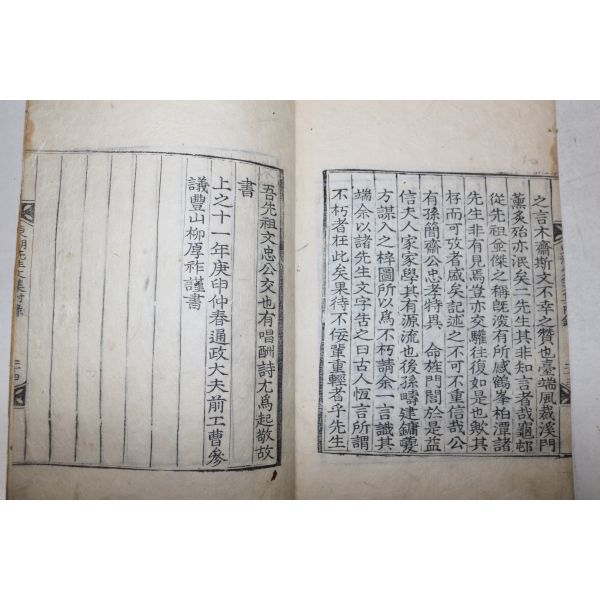 之言木齋斯文不幸之贊也臺端風裁溪門
薰炙殆亦泯矣二先生其非知言者哉龜邨
從先祖並傑之稱旣渡有所感鶴峯柏潭諸
先生非有見焉豈亦交驩往復如是也歟其
杯而可攷者戚矣記述之不可不重信哉公
有孫簡齋公忠孝特異 命㫌門閭於是益
信夫人家家學其有源流也後孫疇建鏞䕫
方謀入之梓圖所以爲不朽請余一言識其
端余以諸先生文字告之曰古人恆言所謂
不朽者在此矣果待不侫輩重輕者乎先生
吾先祖文忠公交也有唱酬詩尤爲起敬故
書
上之十一年庚申仲春通政大夫前工曹參
議豐山柳厚祚謹書
先生文集附錄